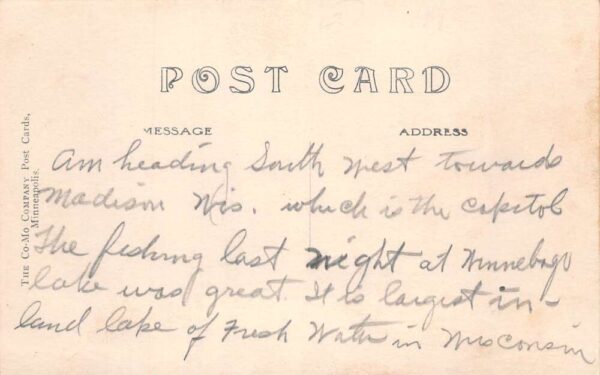 POST CARD
MESSAGE
ADDRESS
THE CO-MO COMPANY Post Cards,
Minneapolis.
Am heading South West towards
Madison Wis. which is the capitol
The fishing last night at Winnebago
lake was great. It is largest in-
land lake of Fresh Water in Wisconsin